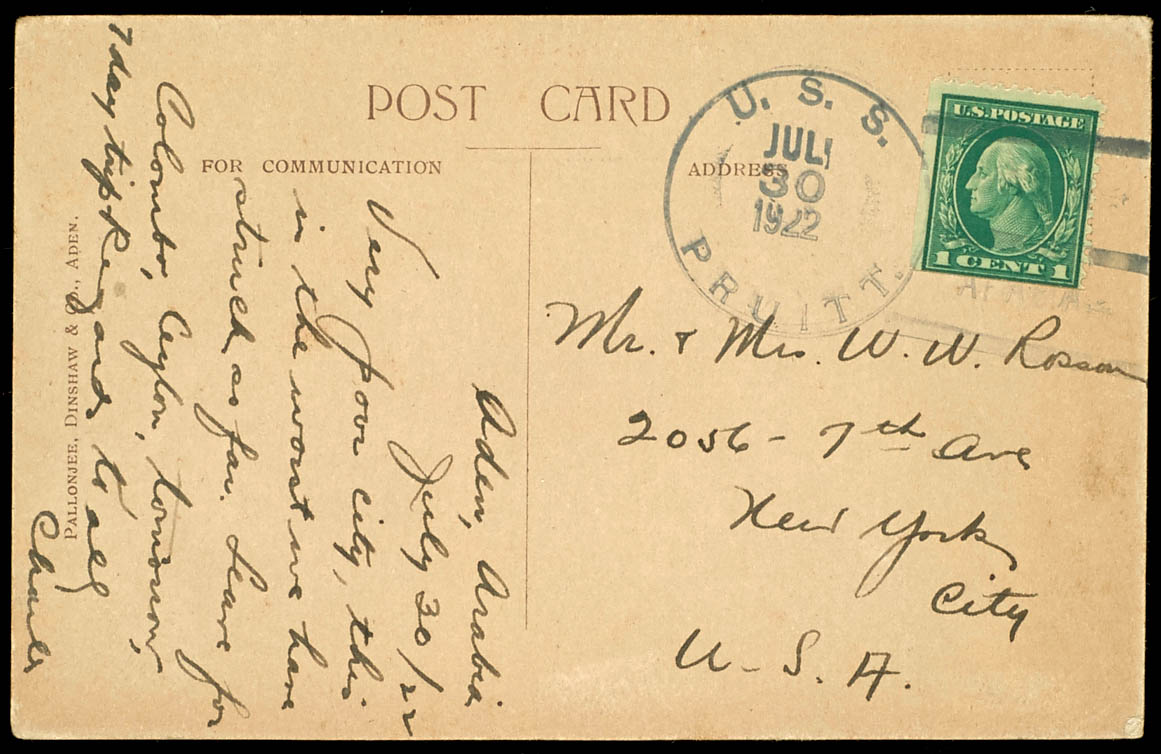 POST CARD
FOR COMMUNICATION
ADDRESS
PALLONJEE, DINSHAW & CO., ADEN.
U. S. S.
PRUITT.
JUL
30
1922
U.S. POSTAGE
1 CENT 1
Aden, Arabia
July 30/22
Very poor city, this
is the worst we have
struck so far. Leave for
Colombo, Ceylon, tomorrow,
7 day trip. Regards to all
Charles
Mr. & Mrs. W. W. Rosson
2056 - 7th Ave
New York
City
U. S. A.